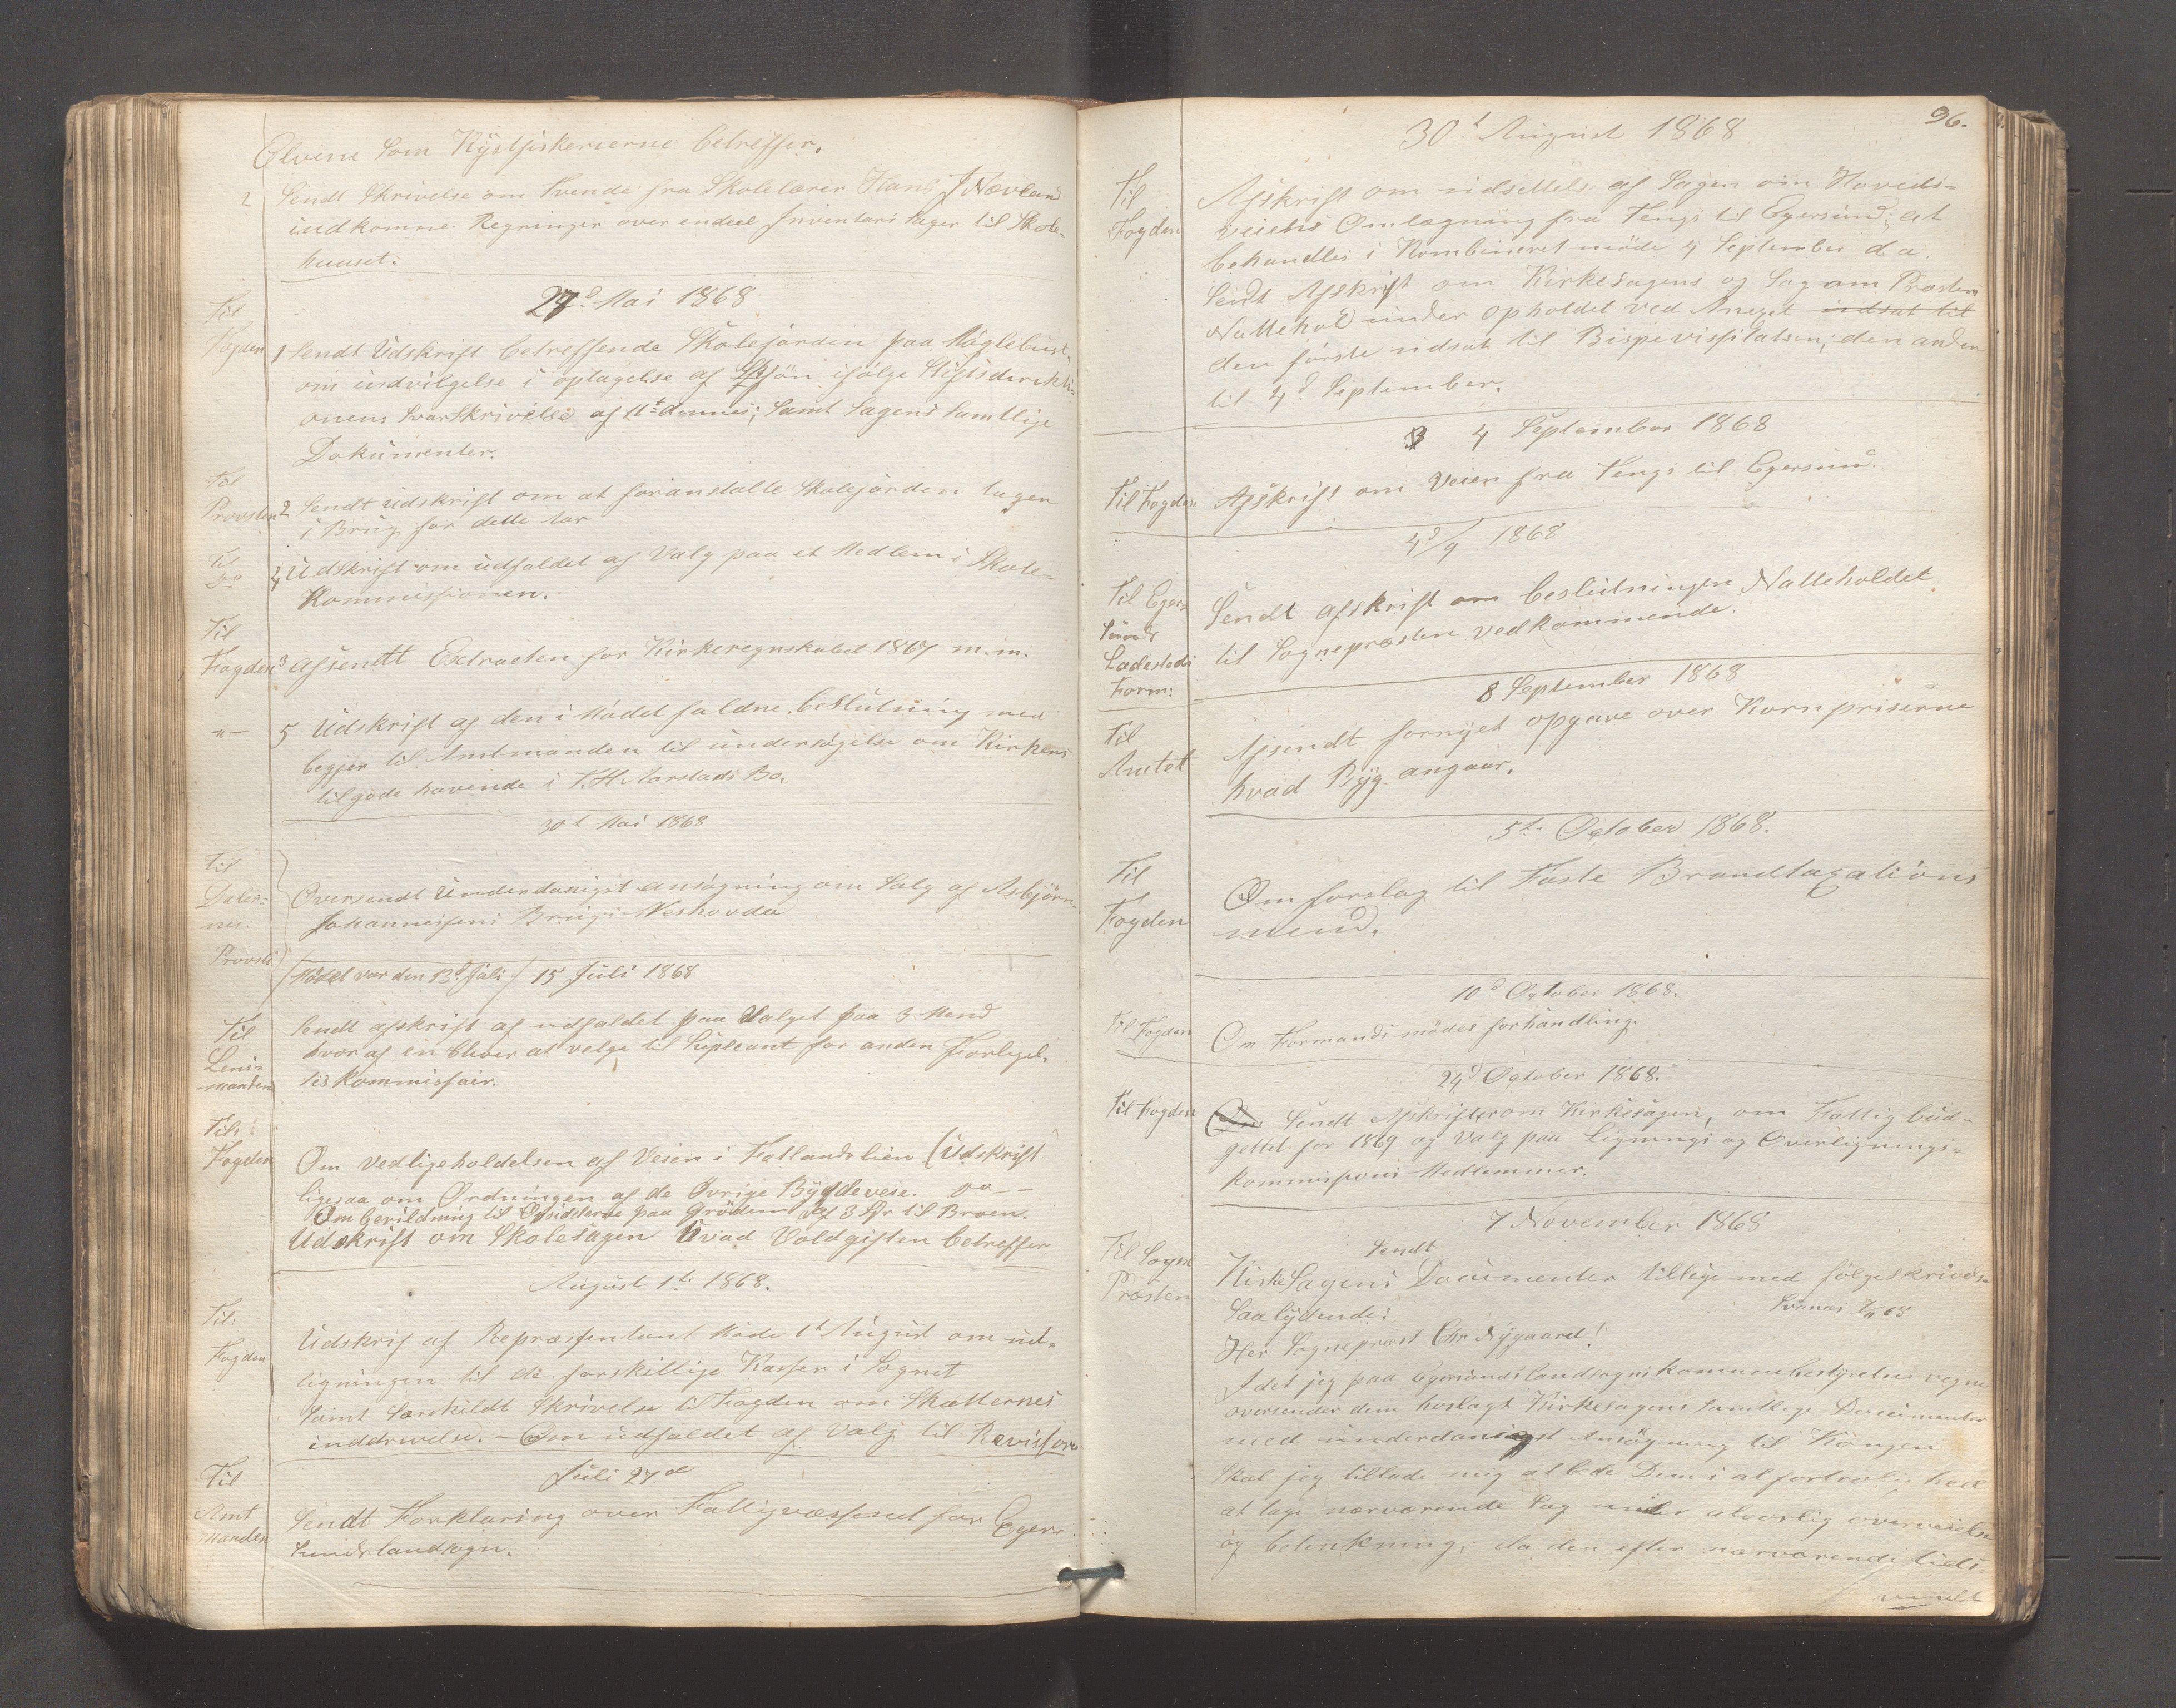 Elvene Som Kystfiskerierne betreffer.
2 Sendt Skrivelse om Tvende fra Skolelærer Hans J Nævland
indkomne Regninger over endeel Inventarii Sager til Skole-
huuset.
27d Mai 1868
Til
Fogden 1 Sendt Udskrift betreffende Skolejorden paa
om indvilgelse i optagelse af Skjön ifölge Stiftsdirekti-
onens SvarSkrivelse af 11te dennes; Samt Sagens Samtlige
Dokumenter.
Til
Provsten 2 Sendt Udskrift om at foranstalte Skolejorden tagen
i Brug for dette Aar
Til
Do 4 Udskrift om udfaldet af Valg paa et Medlem i Skole-
Kommissionen.
Til
Fogden 3 Afsendt Extracten for Kirkeregnskabet 1867 m.m.
-"- 5 Udskrift af den i Mödet faldne beslutning med
begjer til Amtmanden til undersögelse om Kirkens
tilgode havende i T. H Aarstads Bo.
30t Mai 1868
Til
Daler-
nes
Provsti
Oversendt Underdanigst ansögning om Salg af Asbjörn
Johannesens Brug i Neshovda
(Mödet var den 13d Juli) 15 Juli 1868
Til
Lens-
manden
Sendt afskrift af udfaldet paa Valget paa 3 Mend
hvoraf en bliver at velge til Supleant for anden Forligel-
ses Kommissair.
Til:
Fogden
Om Vedligeholdelsen af Veien i Fotlandslien (Udskrift
ligesaa om Ordningen af de Övrige Bygdeveie. Do —
Om til Opsidderne paa Gröden af 3 Spr til Broen.
Udskrift om Skolesagen hvad Voldgiften betreffer
August 1t. 1868.
Til:
Fogden
Udskrif af Repræssentant Möde 1t August om ud-
ligningen til de forskillige Kasser i Sognet
Samt Særskildt Skrivelse til Fogden om Skatternes
inddrivelse. – Om udfaldet af Valg til Revissore
Juli 27de
Til
Amt
manden
Sendt Forklaring over Fattigvæssenet for Eger-
Sundslandsogn.
96.
30t August 1868
Til
Fogden
Afskrift om udsettels af Sagen om Hoveds-
veiens Omlægning fra Tengs til Egersund, at
behandles i Kombineretmöde 4 September d. a.
Sendt Afskrift om Kirkesagens og Sag om Præstens
Nattehold under opholdet ved Annexet indsat til
den förste udsat til Bispevissitatsen; den anden
til 4d September.
3 4 September 1868
Til Fogden Afskrift om Veien fra Tengs til Egersund.
4d/9 1868
Til Eger-
Sunds
Ladesteds
Form:
Sendt afskrift om beslutningen Natteholdet
til Sognepræsten Vedkommende.
8 September 1868
Til
Amtet
Afsendt fornyet opgave over Kornpriserne
hvad Byg angaar.
5te October 1868.
Til
Fogden
Om forslag til Faste Brandtaxations
mend.
10d October 1868.
Til Fogden Om Formandsmödes forhandling.
24d October 1868.
Til Fogden Om Sendt Afskrifter om Kirkesagen, om Fattig bud-
gettet for 1869 og Valg paa Lignings og Overlignings-
kommissions Medlemmer.
7 November 1868
Til Sogne
Præsten
Sendt
KirkeSagens Documenter tillige med fölgeskrivelse
Saalydende:
Svanes 7/11 68
Her Sognepræst Chr Nygaard!
Idet jeg paa Egersundslandsognskommunebestyrelses vegne
oversender dem hoslagt Kirkesagens Samtlige Documenter
med underdanigst Ansögning til Kongen
Skal jeg tillade mig at bede Dem i al fortrolig hed
at tage nærværende Sag under alvorlig overveielse
og betenkning; da den efter nærværende tids-